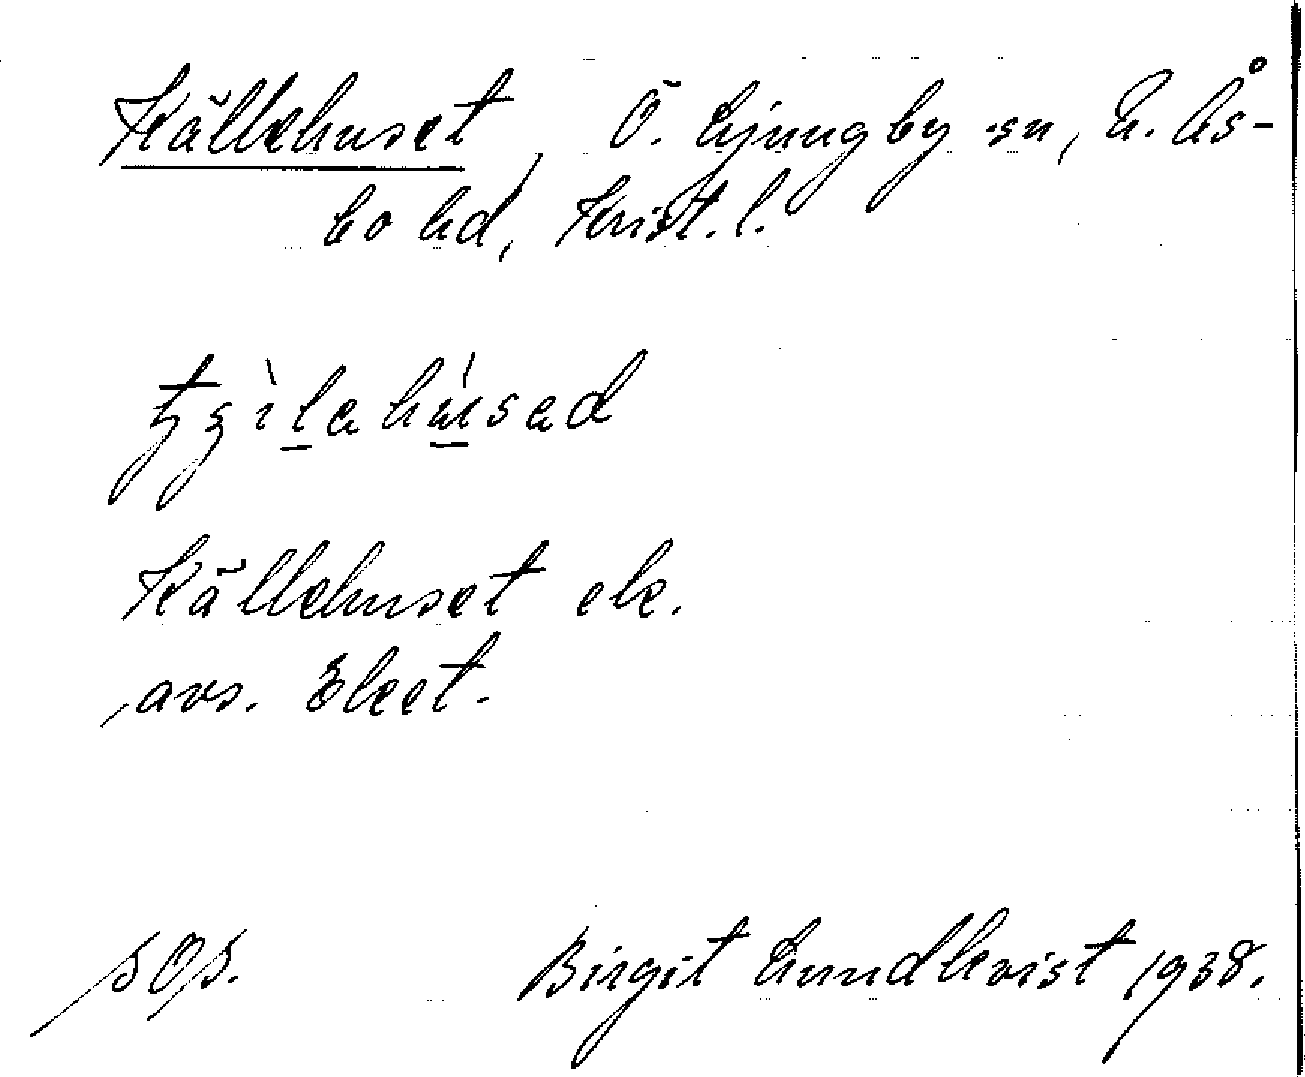 Källehuset, Ö. Ljungby sn, N. Ås-
bo hd, Krist. l.
Källehuset ek.
avs. Eket.
sOs. Birgit Lundkvist 1938.